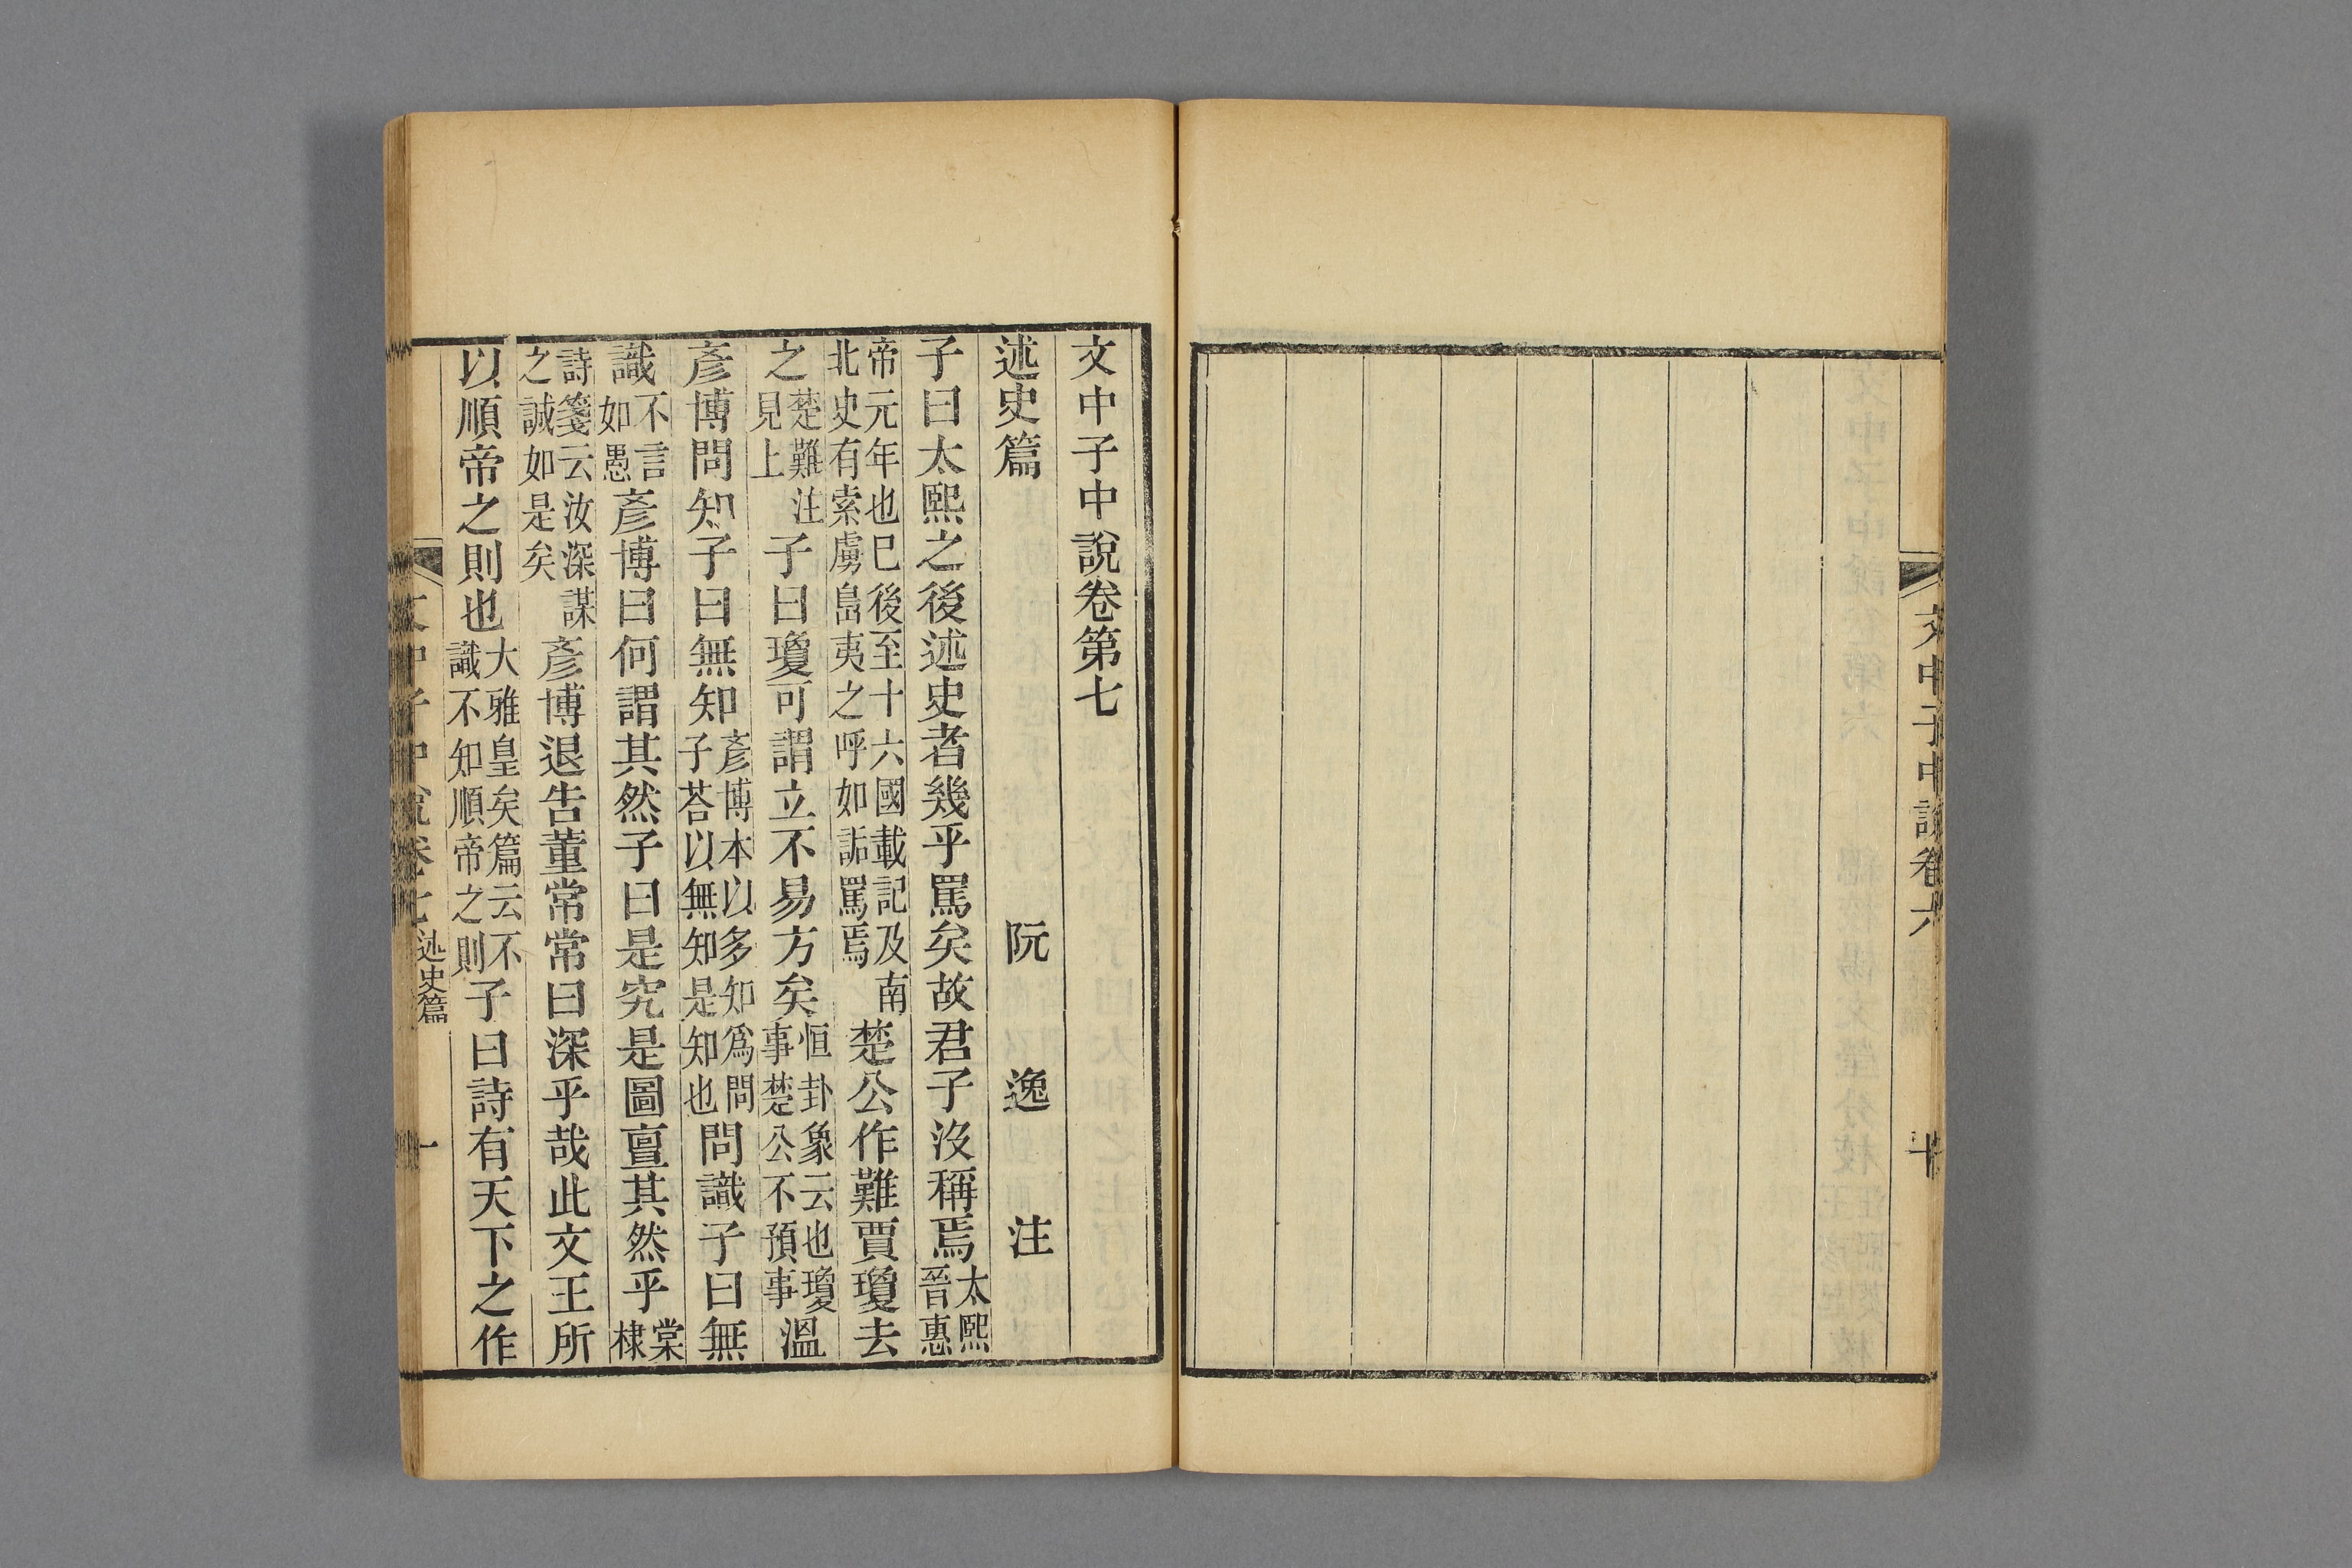 文中子中說卷六
十
文中子中說卷第七
述史篇 阮 逸 注
子曰太熙之後述史者幾乎罵矣故君子沒稱焉太熙晉惠
帝元年也已後至十六國載記及南北史有索虜島夷之呼如詬罵焉楚公作難賈瓊去
之楚難注見上子曰瓊可謂立不易方矣恒卦象云也瓊事楚公不預事溫
彥博問知子曰無知彥博本以多知爲問子荅以無知是知也問識子曰無
識不言如愚彥博曰何謂其然子曰是究是圖亶其然乎棠棣
詩箋云汝深謀之誠如是矣彥博退告董常常曰深乎哉此文王所
以順帝之則也大雅皇矣篇云不識不知順帝之則子曰詩有天下之作
文中子中說卷七 述史篇
一